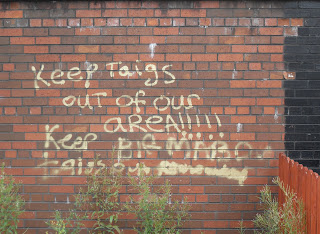 Keep Taigs
out of our
area!!!!!
Keep
taigs out